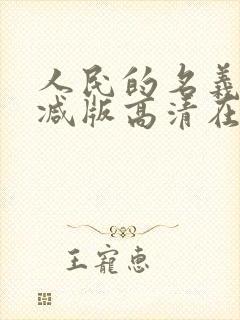 人民的名義
减版高清在
王寵惠